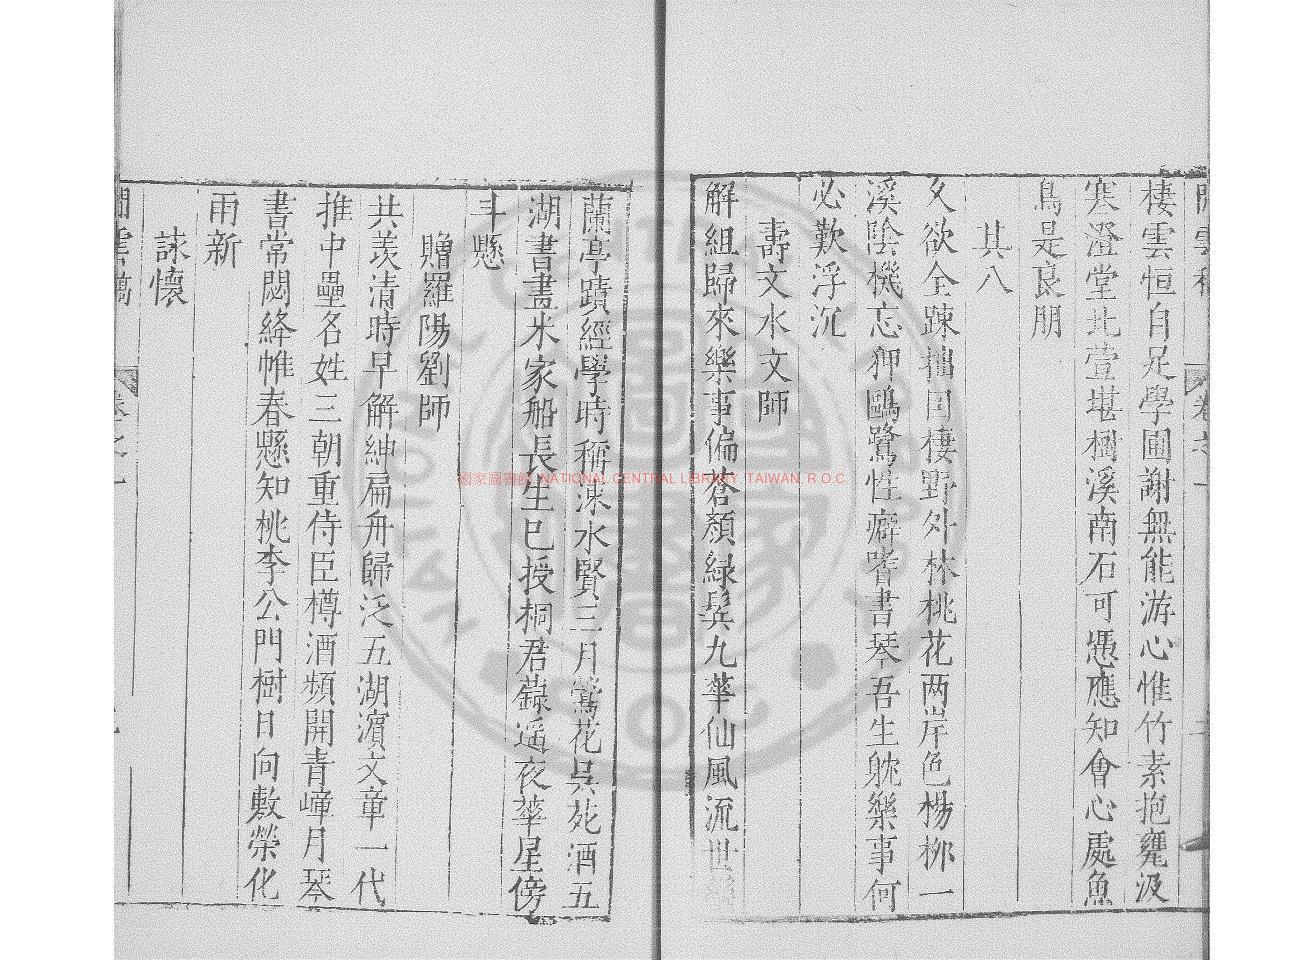 棲雲恒自足學圃謝無能游心惟竹素抱甕汲
寒澄堂北萱堪樹溪南石可憑應知會心處魚
鳥是良朋
其八
久欲全踈拙因棲野外林桃花两岸色楊栁一
溪陰機忘狎鷗鷺性癖嗜書琴吾生躭樂事何
必歎浮沉
壽文水文師
解組歸來樂事偏蒼顏綠鬂九華仙風流世
蘭亭蹟經學時稱涑水賢三月鶯花吳苑酒五
湖書畫米家船長生已授桐君籙遥夜華星傍
斗懸
贈羅陽劉師
共羨清時早解紳扁舟歸泛五湖濱文章一代
推中壘名姓三朝重侍臣樽酒頻開青嶂月琴
書常閟絳帷春懸知桃李公門樹日向敷榮化
雨新
詠懷
國家圖書館 NATIONAL CENTRAL LIBRARY TAIWAN, R.O.C